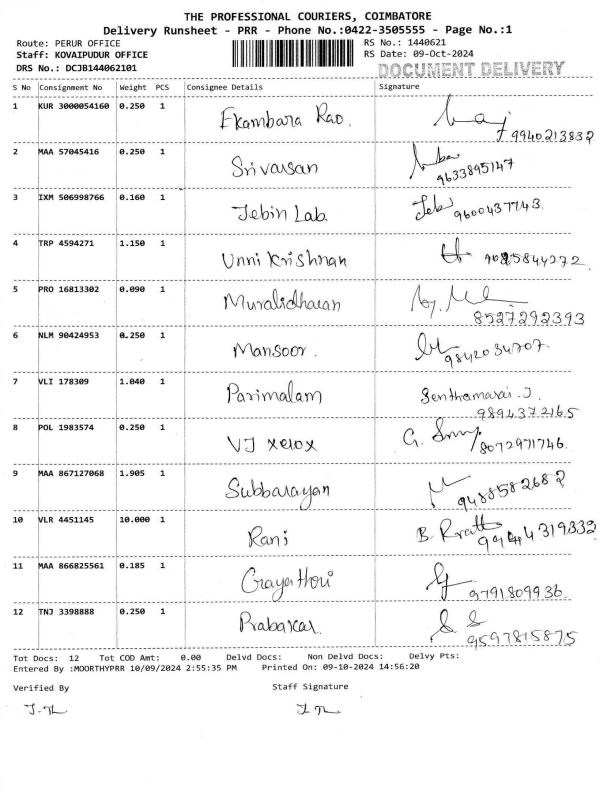 THE PROFESSIONAL COURIERS, COIMBATORE
Delivery Runsheet - PRR - Phone No.:0422-3505555 - Page No.:1
Route: PERUR OFFICE RS No.: 1440621
Staff: KOVAIPUDUR OFFICE RS Date: 09-Oct-2024
DRS No.: DCJB144062101 DOCUMENT DELIVERY
S No Consignment No Weight PCS Consignee Details Signature
1 KUR 3000054160 0.250 1 Ekambara Rao.
9940213832
2 MAA 57045416 0.250 1 Srivarsan
9633895147
3 IXM 506998766 0.160 1 Jebin Lab. Jebi 9600437743.
4 TRP 4594271 1.150 1 Unni Krishnan 5844272
5 PRO 16813302 0.090 1 Muralidharan
8527292393
6 NLM 90424953 0.250 1 Mansoor.
9842034707.
7 VLI 178309 1.040 1 Parimalam Senthamarai.J
9894372165
8 POL 1983574 0.250 1 VJ xerox G.
8072971746.
9 MAA 867127068 1.905 1 Subbarayan
9488582682
10 VLR 4451145 10.000 1 Rani B.
4319332
11 MAA 866825561 0.185 1 Gayathori
9791809936.
12 TNJ 3398888 0.250 1 Prabakar. S. S
9597815875
Tot Docs: 12 Tot COD Amt: 0.00 Delvd Docs: Non Delvd Docs: Delvy Pts:
Entered By :MOORTHYPRR 10/09/2024 2:55:35 PM Printed On: 09-10-2024 14:56:20
Verified By Staff Signature